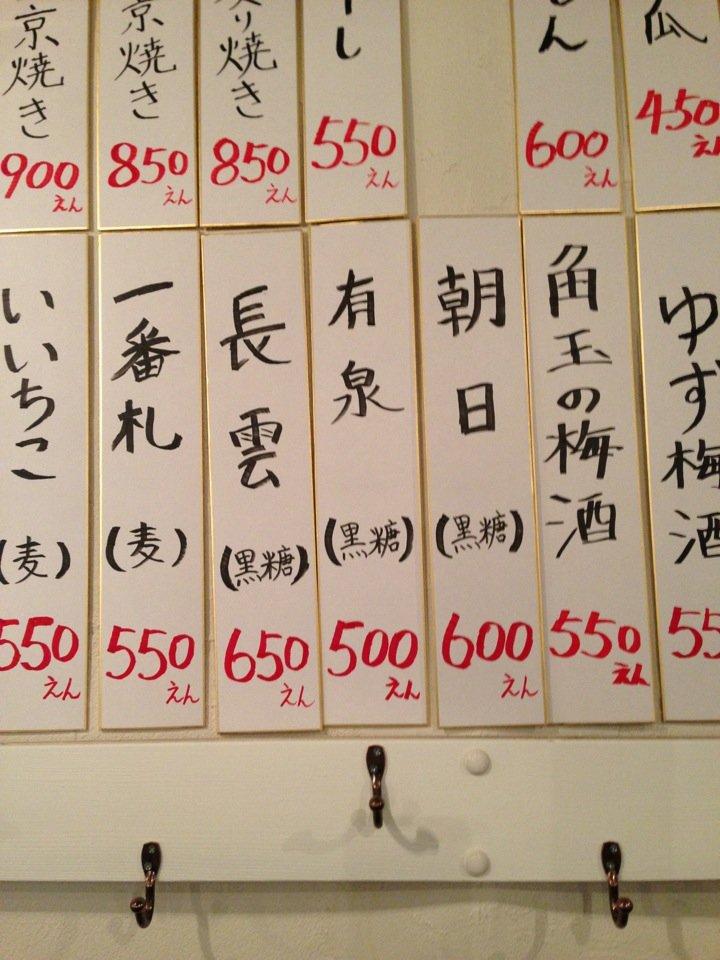 瓜
450
えん
ん
600
えん
し
550
えん
り焼き
850
えん
京焼き
850
えん
京焼き
900
えん
ゆず梅酒
55
角玉の梅酒
550
えん
朝日
(黒糖)
600
えん
有泉
(黒糖)
500
えん
長雲
(黒糖)
650
えん
一番札
(麦)
550
えん
いいちこ
(麦)
550
えん